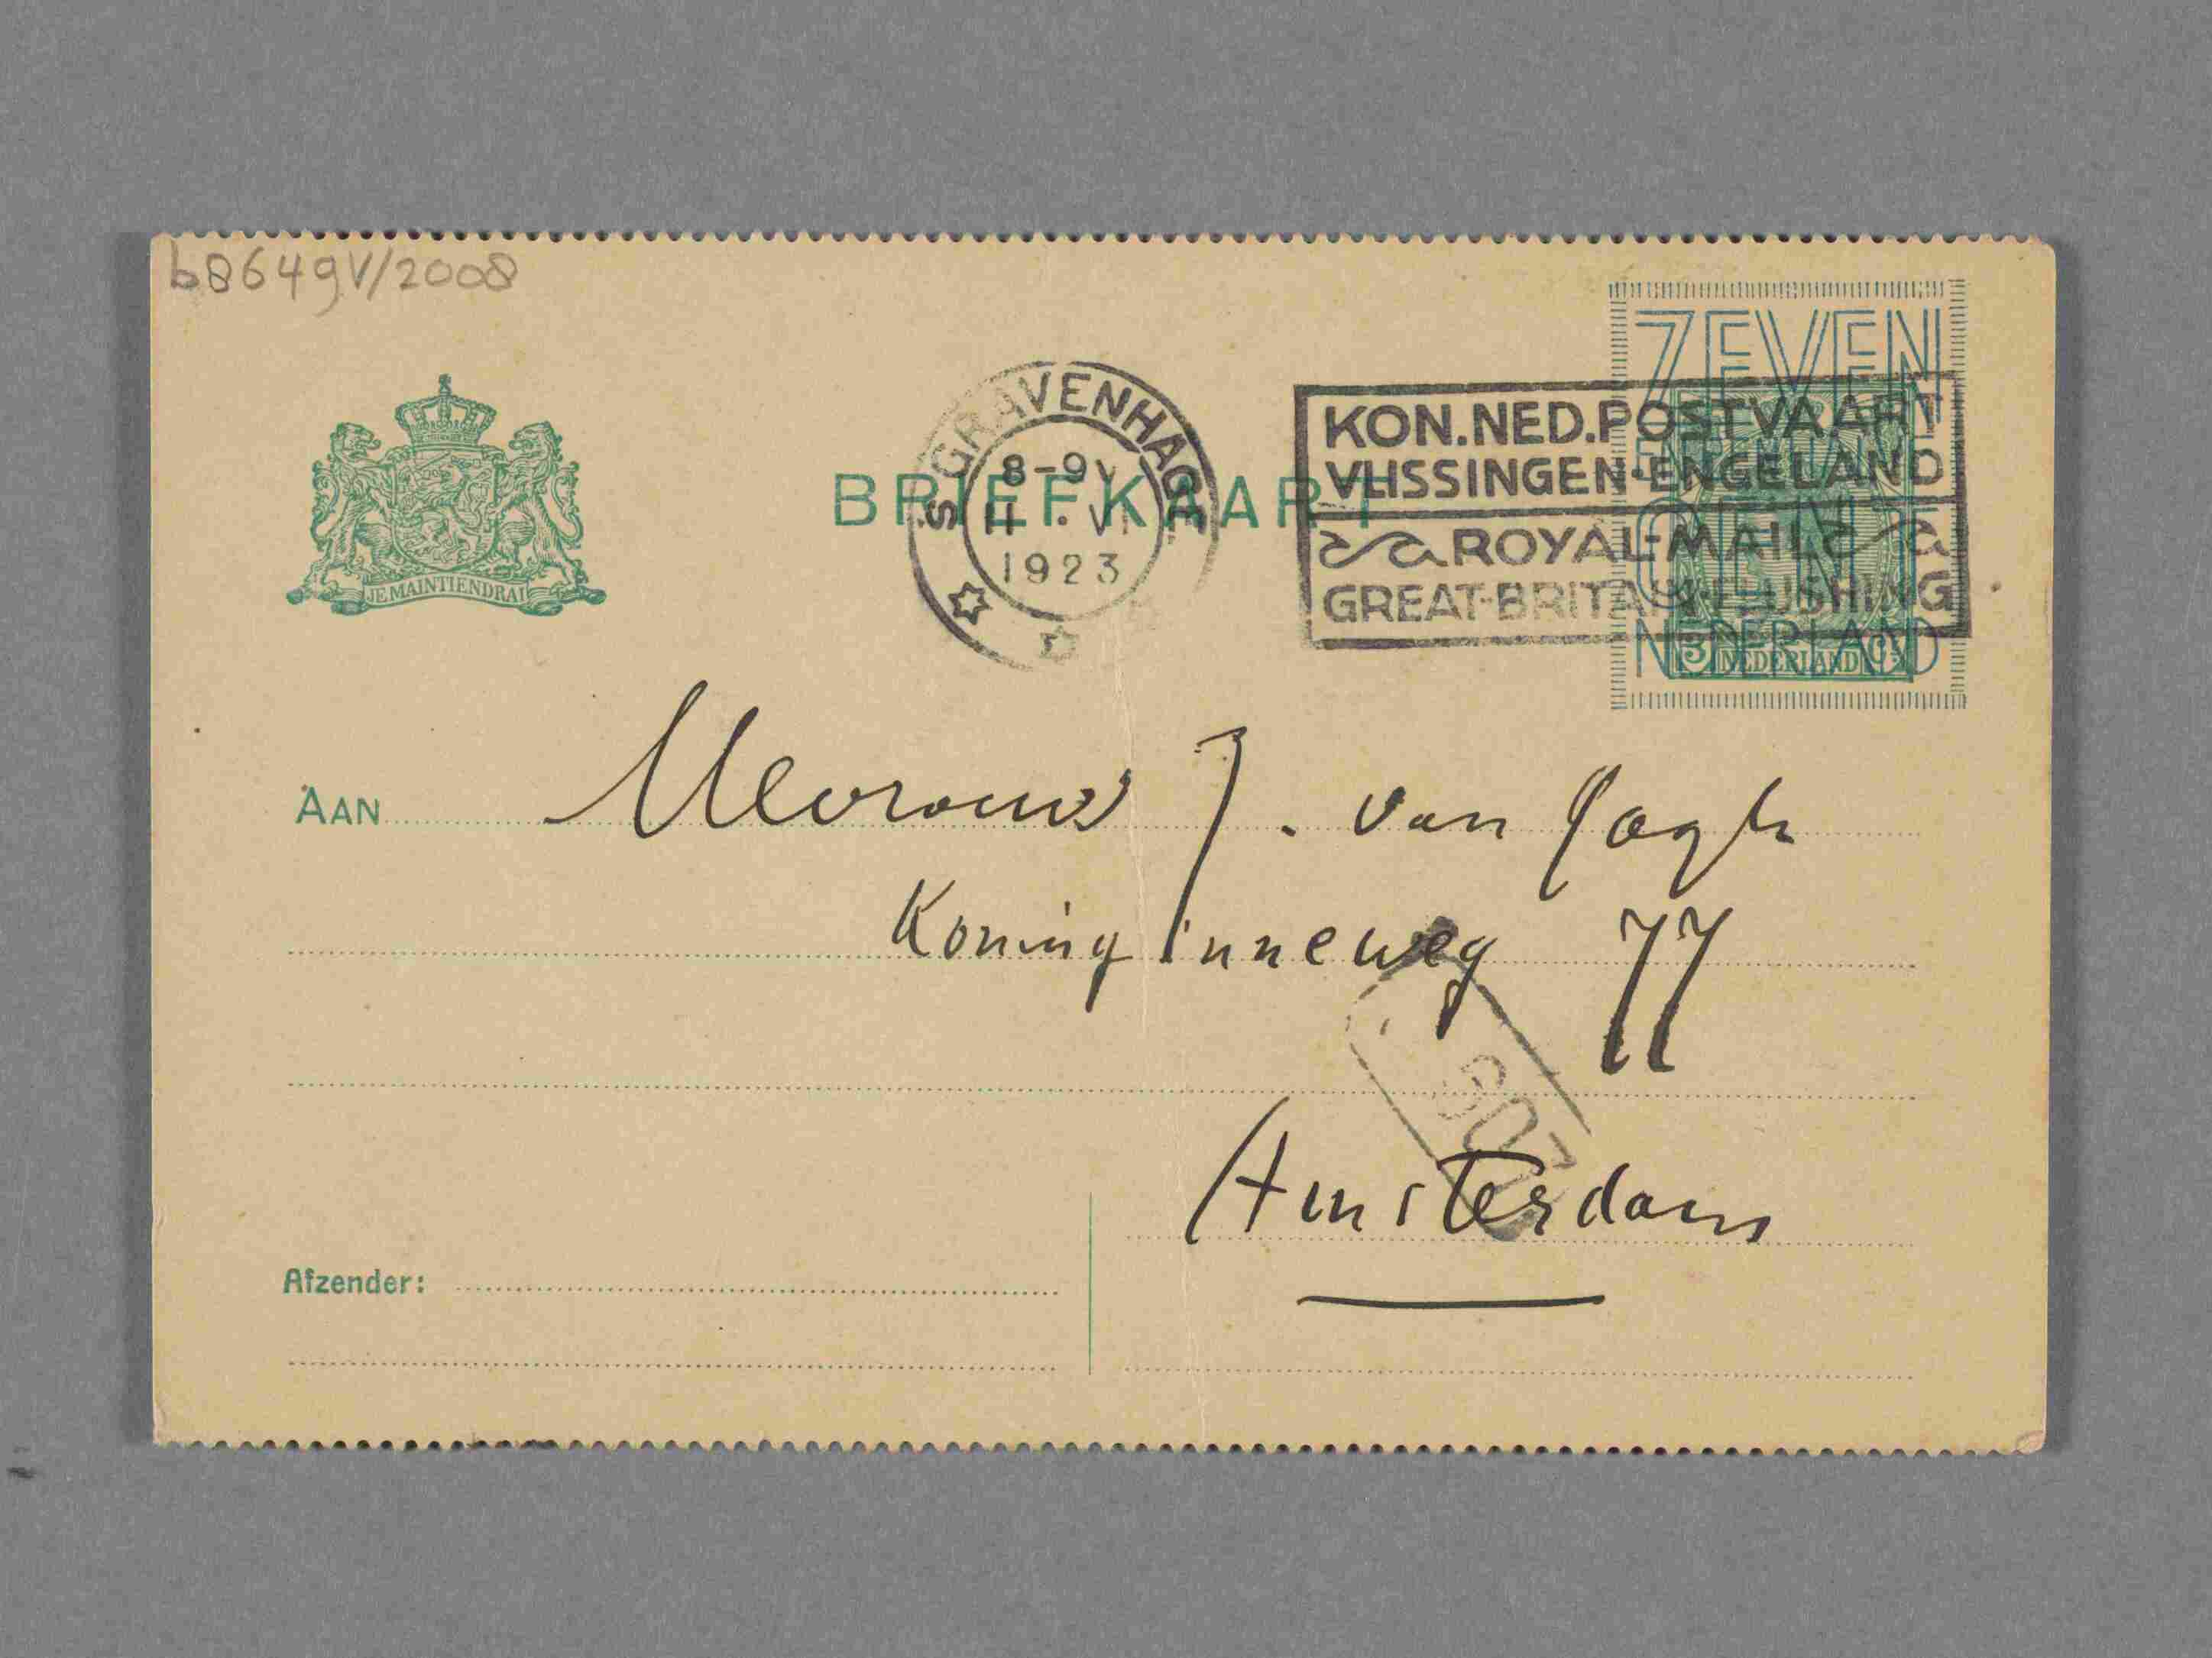 b8649V/2008
JE MAINTIENDRAI
BRIEFKAART
'S GRAVENHAGE
8-9V
11.VI
1923
KON.NED.POSTVAART
VLISSINGEN-ENGELAND
ROYAL-MAIL
GREAT-BRITAIN-FLUSHING
ZEVEN
CENT
NEDERLAND
NEDERLAND
AAN Mevrouw J. van Gogh
Koninginneweg 77
Amsterdam
Afzender: